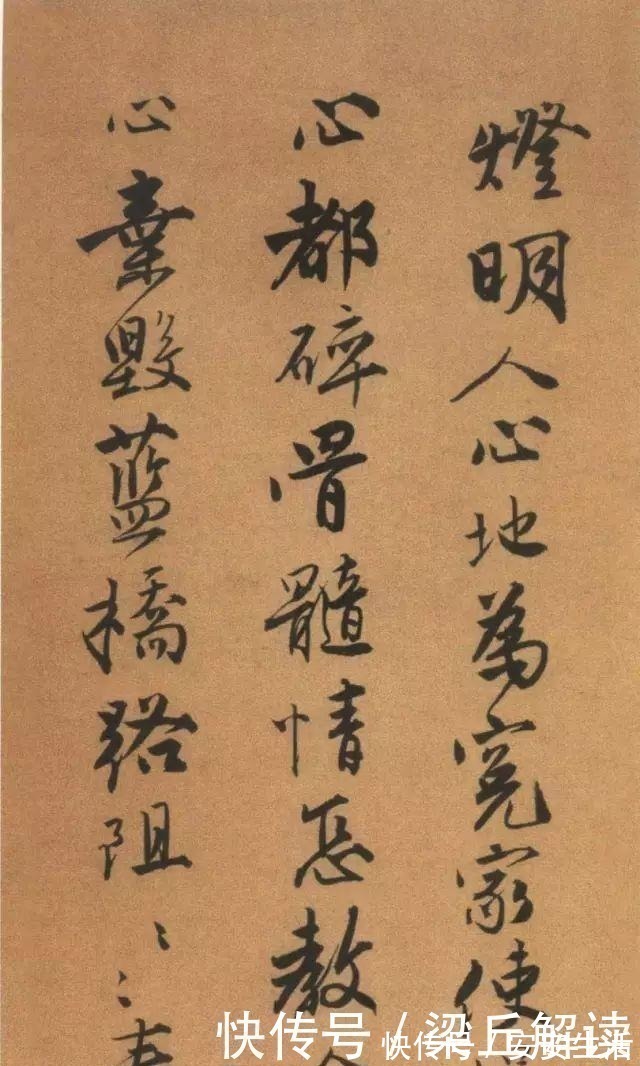 燈明人心地為寃家使
心都碎骨髓情怎教
心棄毀藍橋路阻
快传号 / 梁丘解读
快传号